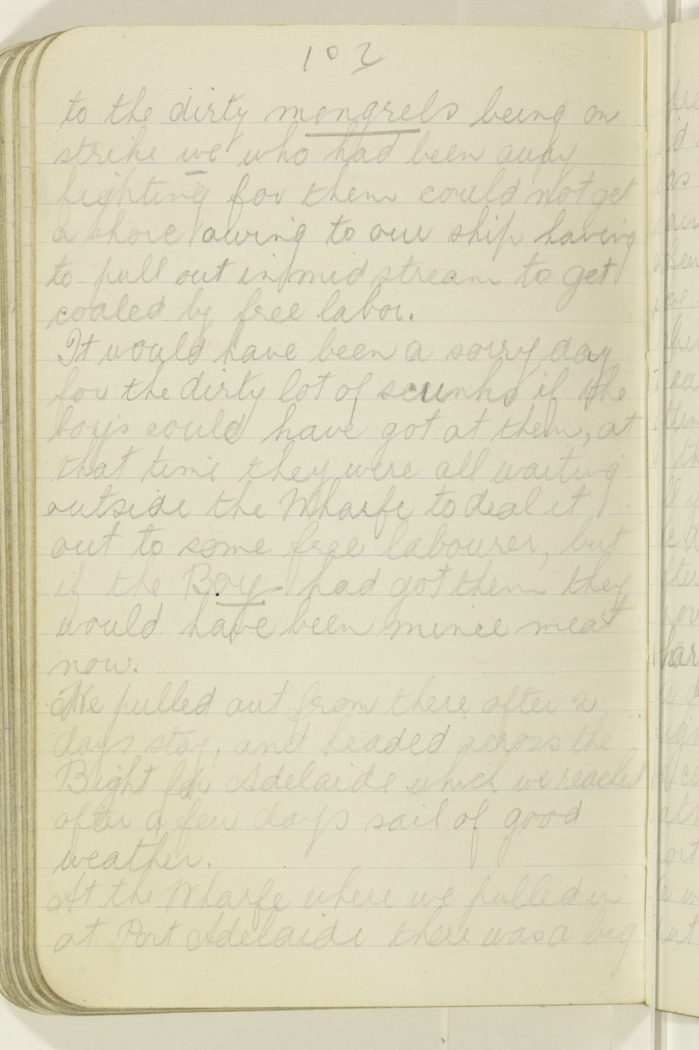 102
to the dirty mongrels being on
strike we who had been away
fighting for them could not get
a shore owing to our ship having
to pull out in mid stream to get
coaled by free labor.
It would have been a sorry day
for the dirty lot of scunks if the
boys could have got at them, at
that time they were all waiting
outside the Wharfe to deal it
out to some free labourer, but
if the Boys had got them they
would have been mince meat
now.
We pulled out from there after 2
days stay, and headed across the
Bight for Adelaide which we reached
after a few days sail of good
weather.
At the Wharfe where we pulled in
at Port Adelaide there was a big